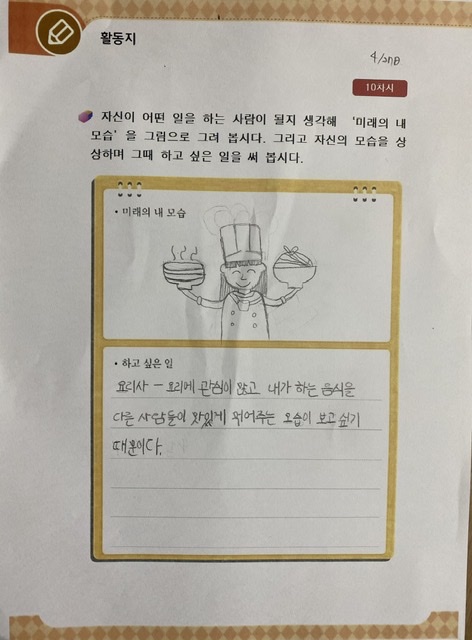 활동지
4/27日
10차시
자신이 어떤 일을 하는 사람이 될지 생각해 '미래의 내
모습' 을 그림으로 그려 봅시다. 그리고 자신의 모습을 상
상하며 그때 하고 싶은 일을 써 봅시다.
• 미래의 내 모습
• 하고 싶은 일
요리사 - 요리에 관심이 많고 내가 하는 음식을
다른 사람들이 맛있게 먹어주는 모습이 보고 싶기
때문이다.